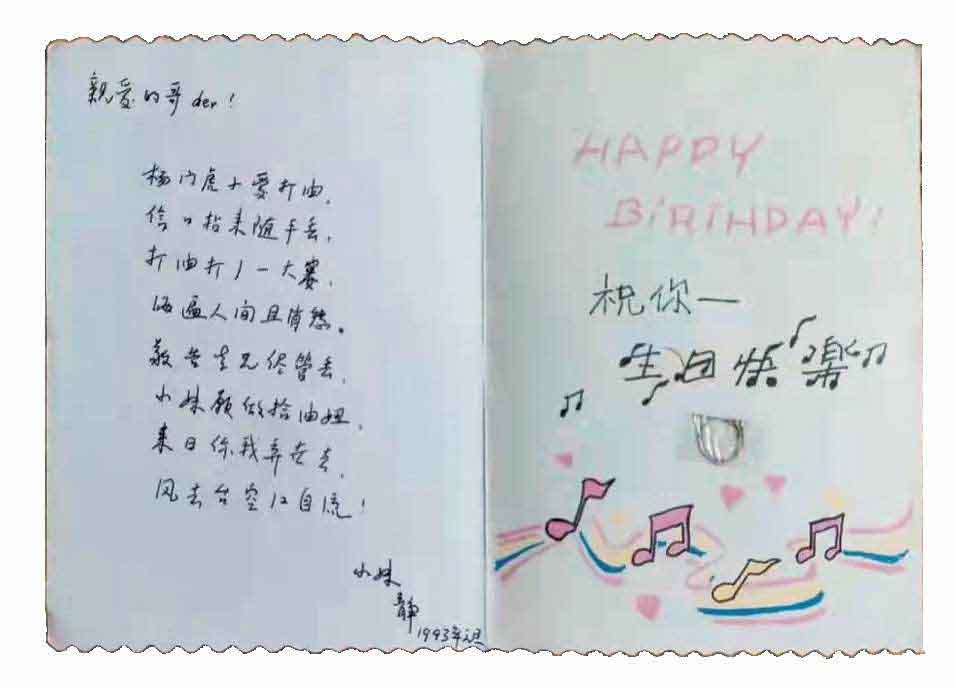 親爱的哥der!
杨门虎卜爱打油,
信口拈来随手丢,
打油打了一大篓,
洒遍人间且消愁。
敬告吾兄尽管丢,
小妹愿做拾油妞,
来日你我弃世去,
风去台空江自流!
小妹
静
1993年
HAPPY
BIRIHDAY!
祝你一
生日快樂